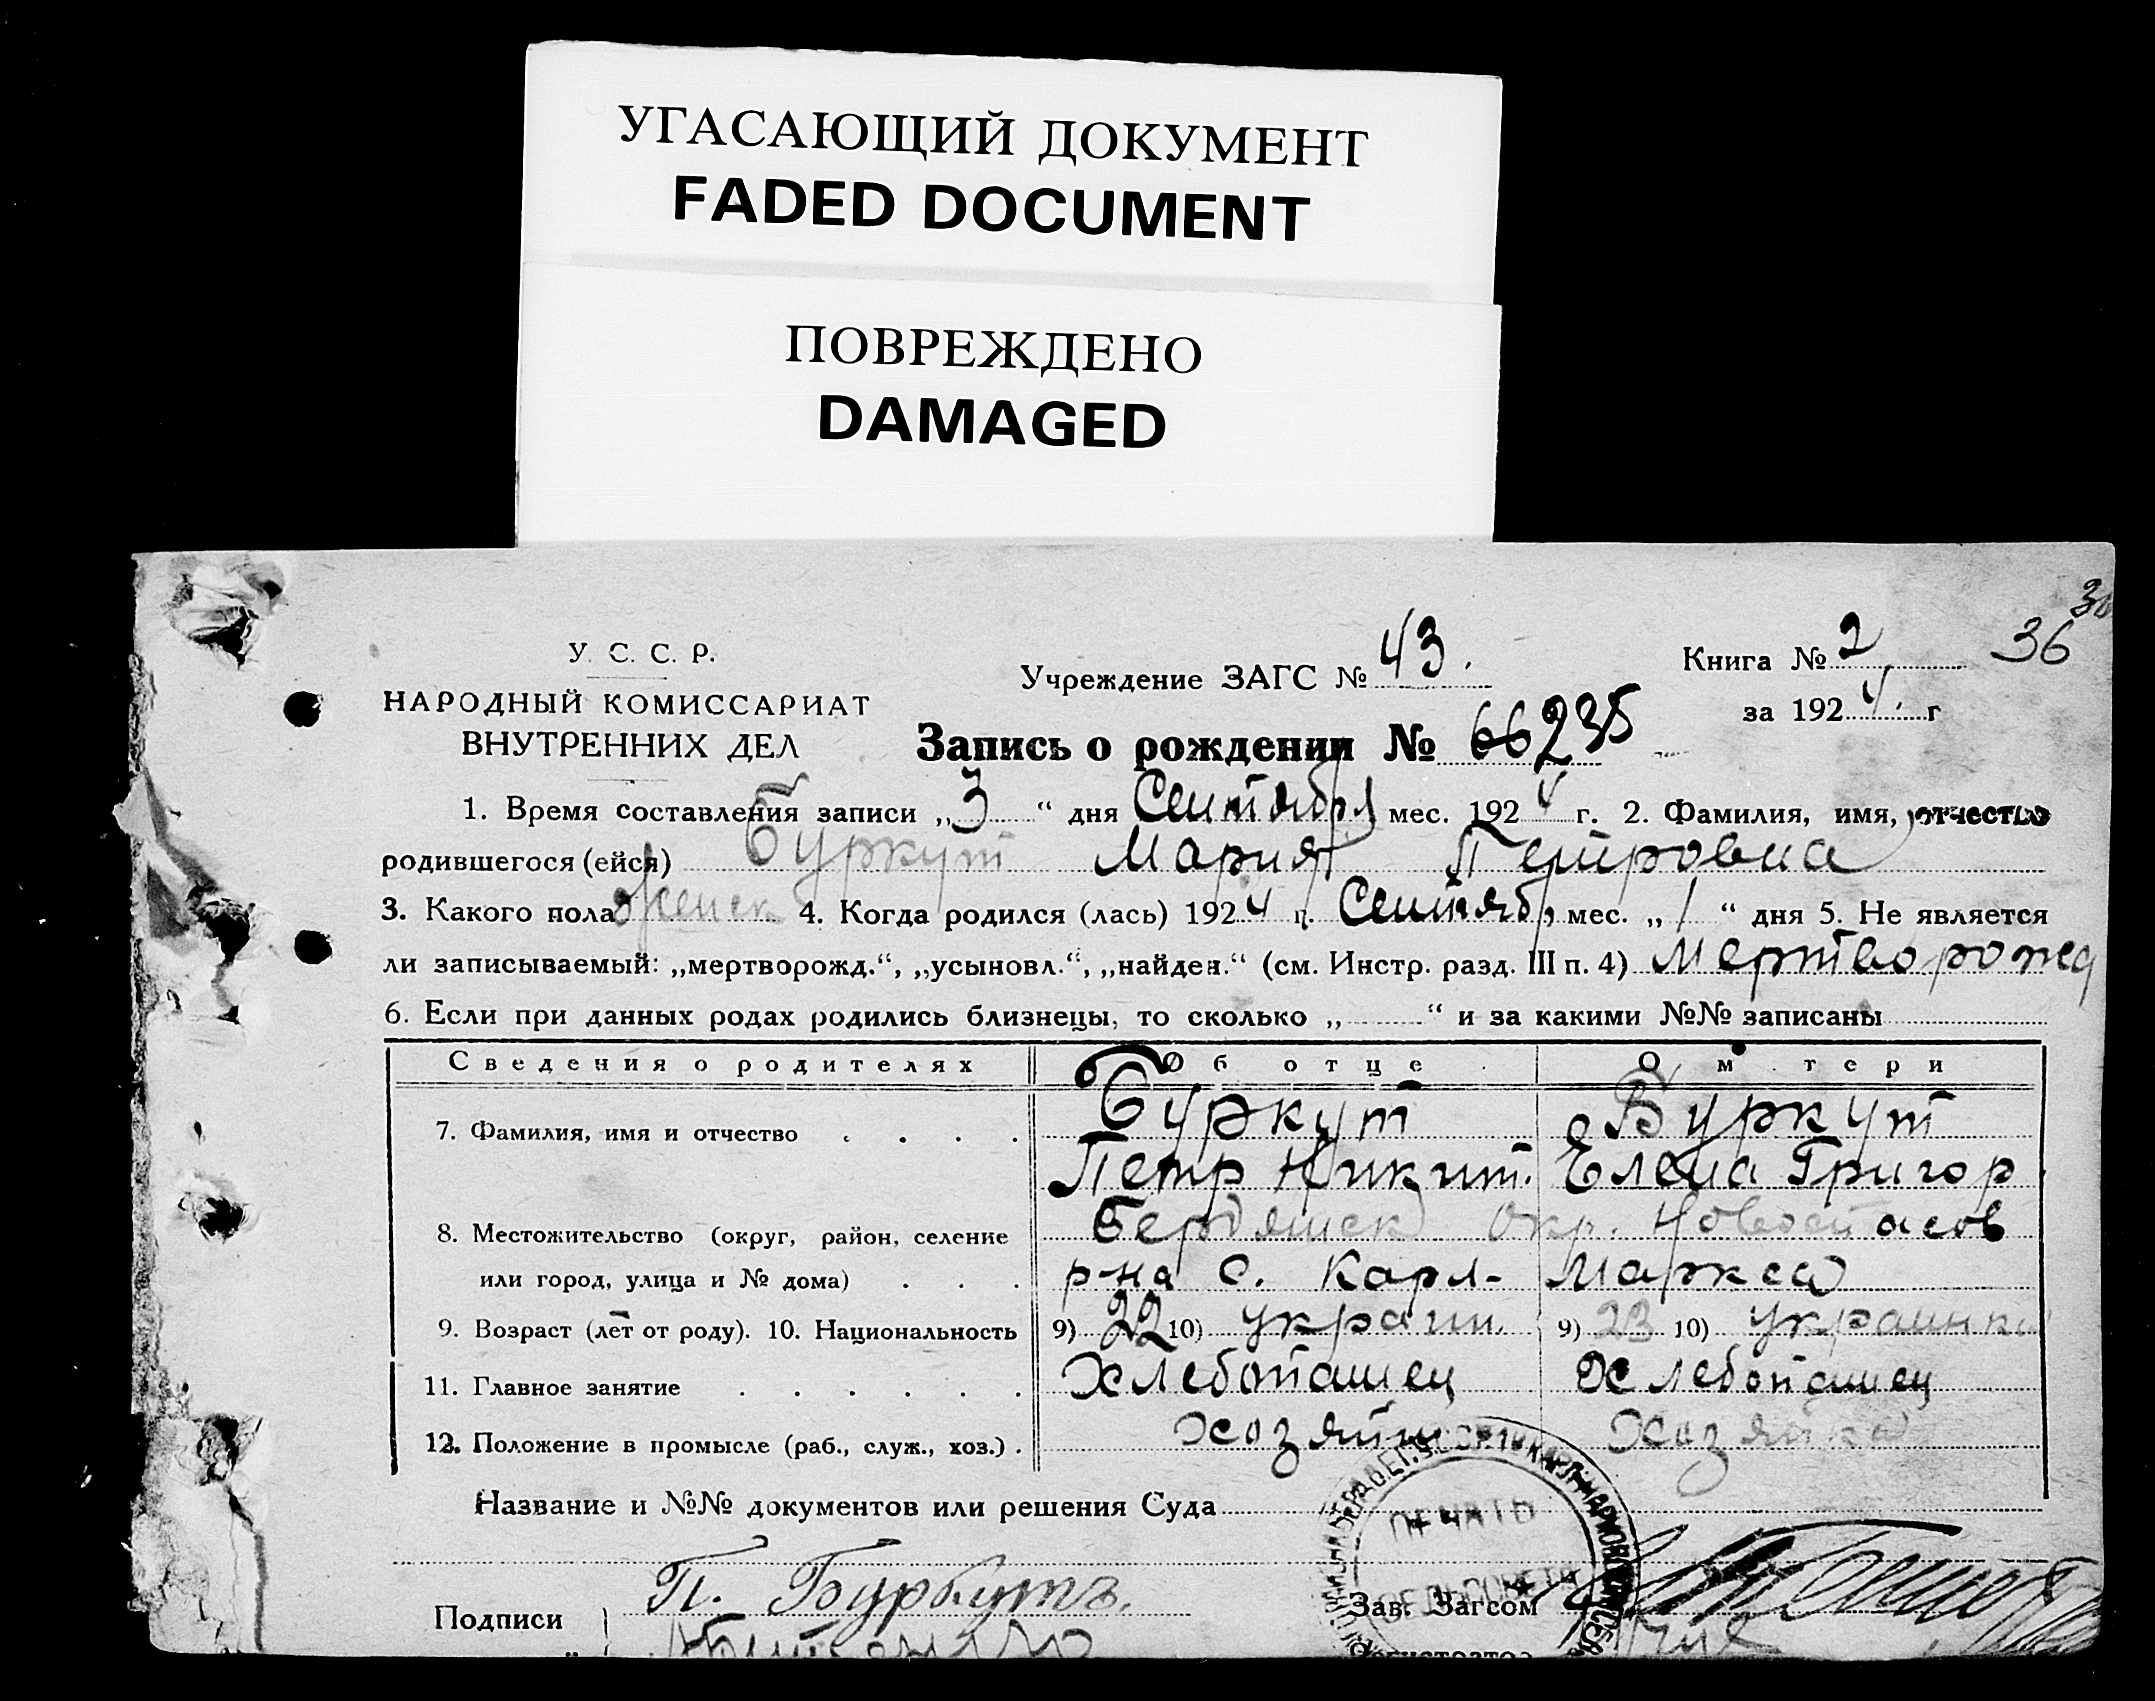 УГАСАЮЩИЙ ДОКУМЕНТ
FADED DOCUMENT
ПОВРЕЖДЕНО
DAMAGED
30
У. С. С. Р.
Учреждение ЗАГС № 43.
Книга № 2 36
НАРОДНЫЙ КОМИССАРИАТ
за 1924. г
ВНУТРЕННИХ ДЕЛ
Запись о рождении № 66 235
1. Время составления записи „3“ дня Сентября мес. 1924 г. 2. Фамилия, имя, отчество
родившегося (ейся) Буркут Мария Петровна
3. Какого пола женск 4. Когда родился (лась) 1924 г. Сентябр, мес. „1“ дня 5. Не является
ли записываемый: „мертворожд.“, „усыновл.“, „найден.“ (см. Инстр. разд. III п. 4) Мертворожд
6. Если при данных родах родились близнецы, то сколько „ “ и за какими №№ записаны
Сведения о родителях Об отце О м тери
7. Фамилия, имя и отчество Буркут Буркут
Петр Никит. Елена Григор
8. Местожительство (округ, район, селение Бердянск окр. Новоспасов
или город, улица и № дома) р-на с. Карл- Маркса
9. Возраст (лет от роду). 10. Национальность 9) 22 10) украин. 9) 23 10) украинка
11. Главное занятие Хлебопашец Хлебопашец
12. Положение в промысле (раб., служ., хоз.) хозяйин Хозяйка
Название и №№ документов или решения Суда
ПЕЧАТЬ
П. Буркутъ.
Подписи Зав. Загсом